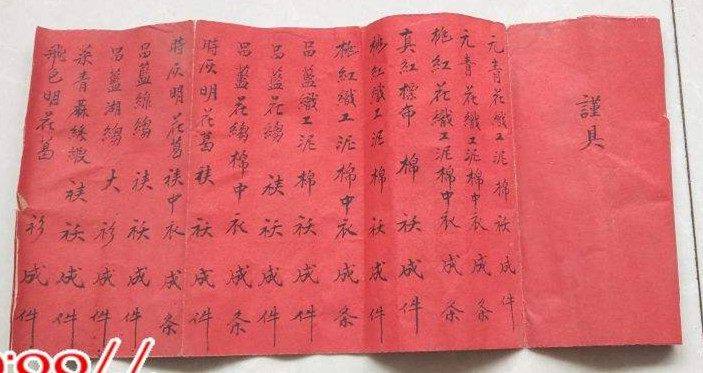 謹具
元青花織工泥棉袄成件
元青花織工泥棉中衣成条
桃紅花織工泥棉中衣成条
真紅標布棉袄成件
桃紅織工泥棉袄成件
桃紅織工泥棉中衣成条
品藍織工泥棉袄成件
品藍花縐袄成件
品藍花縐棉中衣成条
時灰明花葛袄成件
時灰明花葛袄中衣成条
品藍線縐袄成件
品藍湖縐大衫成件
青 袄成件
色明花葛衫成件